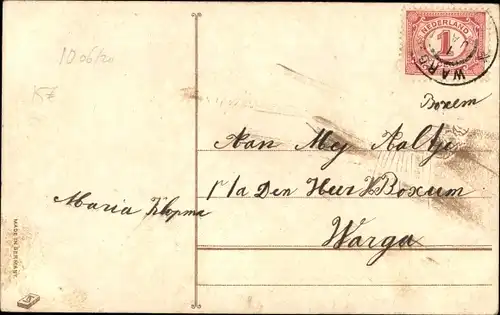 NEDERLAND
1
WARG
1006/20
Boxem
Aan Mej Aaltje
p/a Den Heer K Boxum
Warga
Maria Klopma
MADE IN GERMANY.